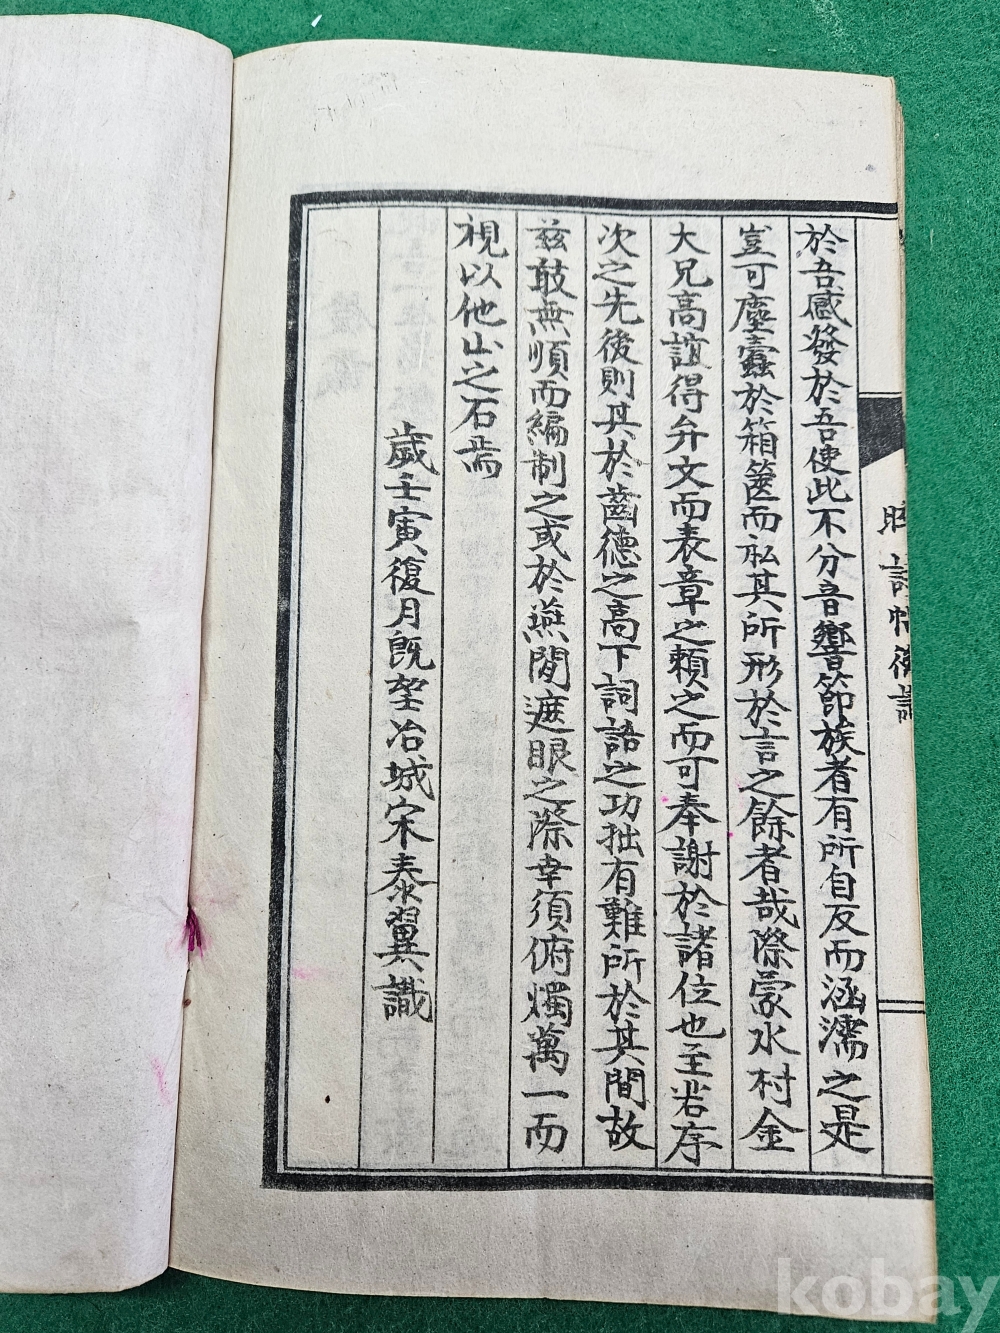 於吾感發於吾使此不分音響節族者有所自反而涵濡之是
豈可塵蠹於箱篋而私其所形於言之餘者哉際蒙水村金
大兄高誼得弁文而表章之賴之而可奉謝於諸位也至若序
次之先後則其於齒德之高下詞語之功拙有難所於其間故
玆敢無順而編制之或於燕閒遮眼之際幸須俯燭萬一而
視以他山之石焉
歲壬寅復月旣望冶城宋泰翼識
詩帖後識
kobay